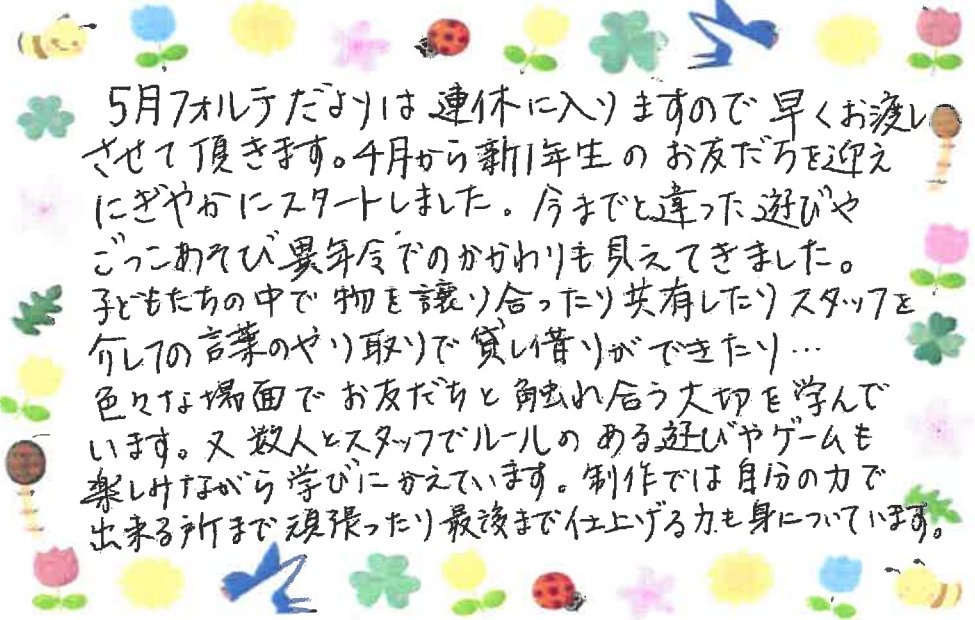 5月フォルテだよりは連休に入りますので早くお渡し
させて頂きます。4月から新1年生のお友だちを迎え
にぎやかにスタートしました。今までと違った遊びや
ごっこあそび異年令でのかかわりも見えてきました。
子どもたちの中で物を譲り合ったり共有したりスタッフを
介しての言葉のやり取りで貸し借りができたり…
色々な場面でお友だちと触れ合う大切を学んで
います。又数人とスタッフでルールのある遊びやゲームも
楽しみながら学びにかえています。制作では自分の力で
出来る所まで頑張ったり最後まで仕上げる力も身についています。